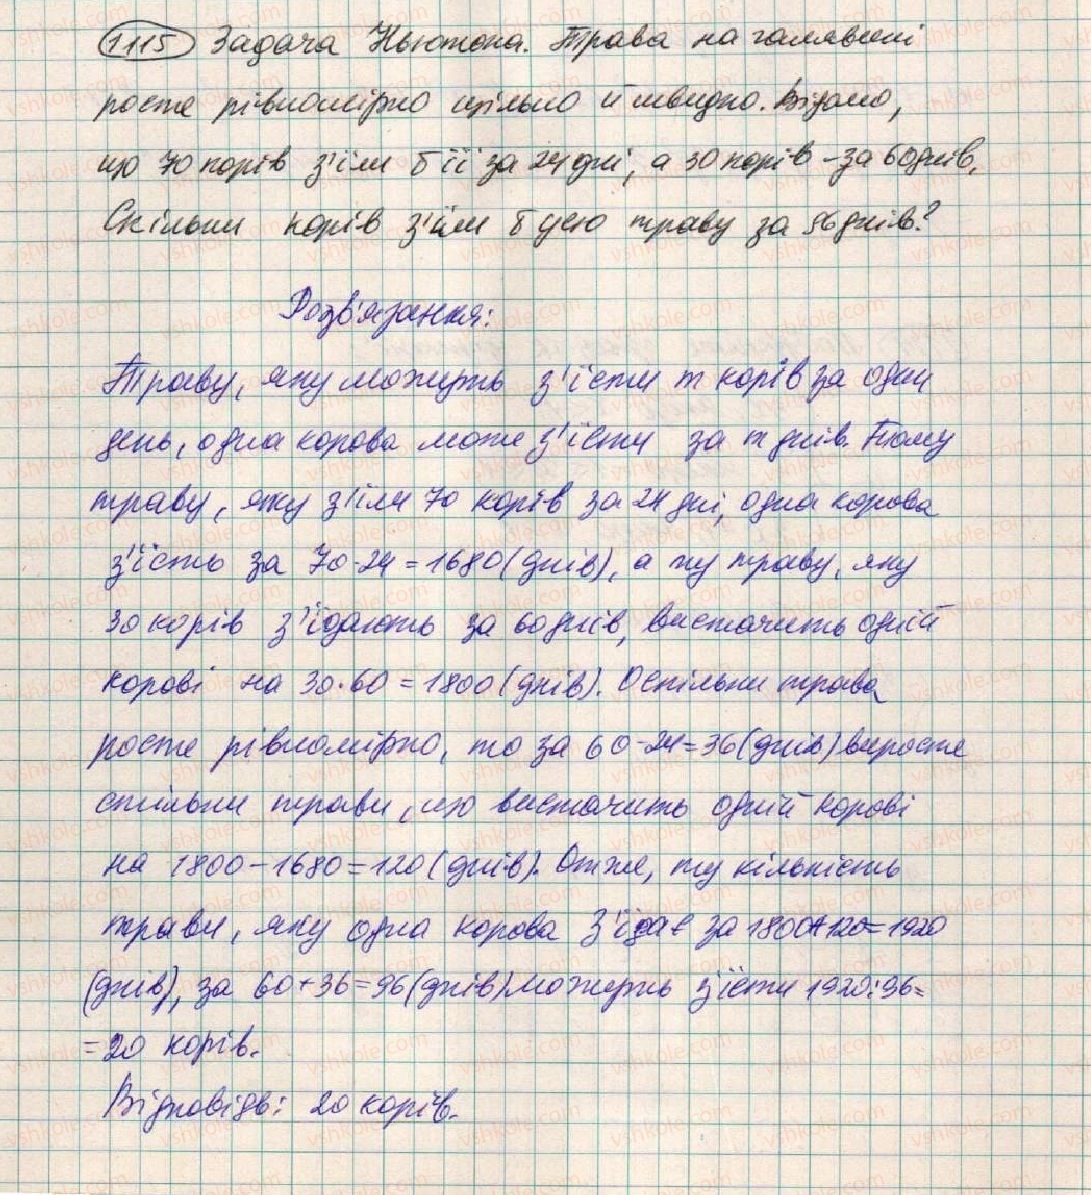 1115 Задача Ньютона. Трава на галявині
росте рівномірно щільно й швидко. Відомо,
що 70 корів з'їли б її за 24 дні, а 30 корів - за 60 днів.
Скільки корів з'їли б усю траву за 96 днів?
Розв'язання:
Траву, яку можуть з'їсти m корів за один
день, одна корова може з'їсти за m днів. Тому
траву, яку з'їли 70 корів за 24 дні, одна корова
з'їсть за 70·24 = 1680 (днів), а ту траву, яку
30 корів з'їдають за 60 днів, вистачить одній
корові на 30·60 = 1800 (днів). Оскільки трава
росте рівномірно, то за 60-24=36 (днів) виросте
стільки трави, що вистачить одній корові
на 1800-1680=120 (днів). Отже, ту кількість
трави, яку одна корова з'їдає за 1800+120=1920
(днів), за 60+36=96 (днів) можуть з'їсти 1920:96=
=20 корів.
Відповідь: 20 корів.
vshkole.com